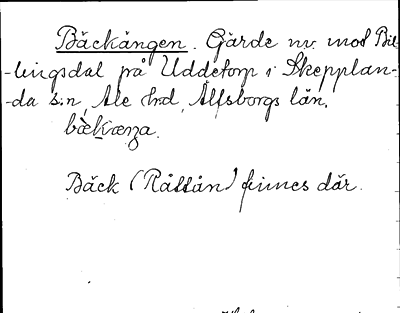 Bäckängen. Gärde nv. mot Bil-
-lingsdal på Uddetorp i Skepplan-
-da s:n, Ale hd, Älfsborgs län.
Bäck (Råttån) finnes där.